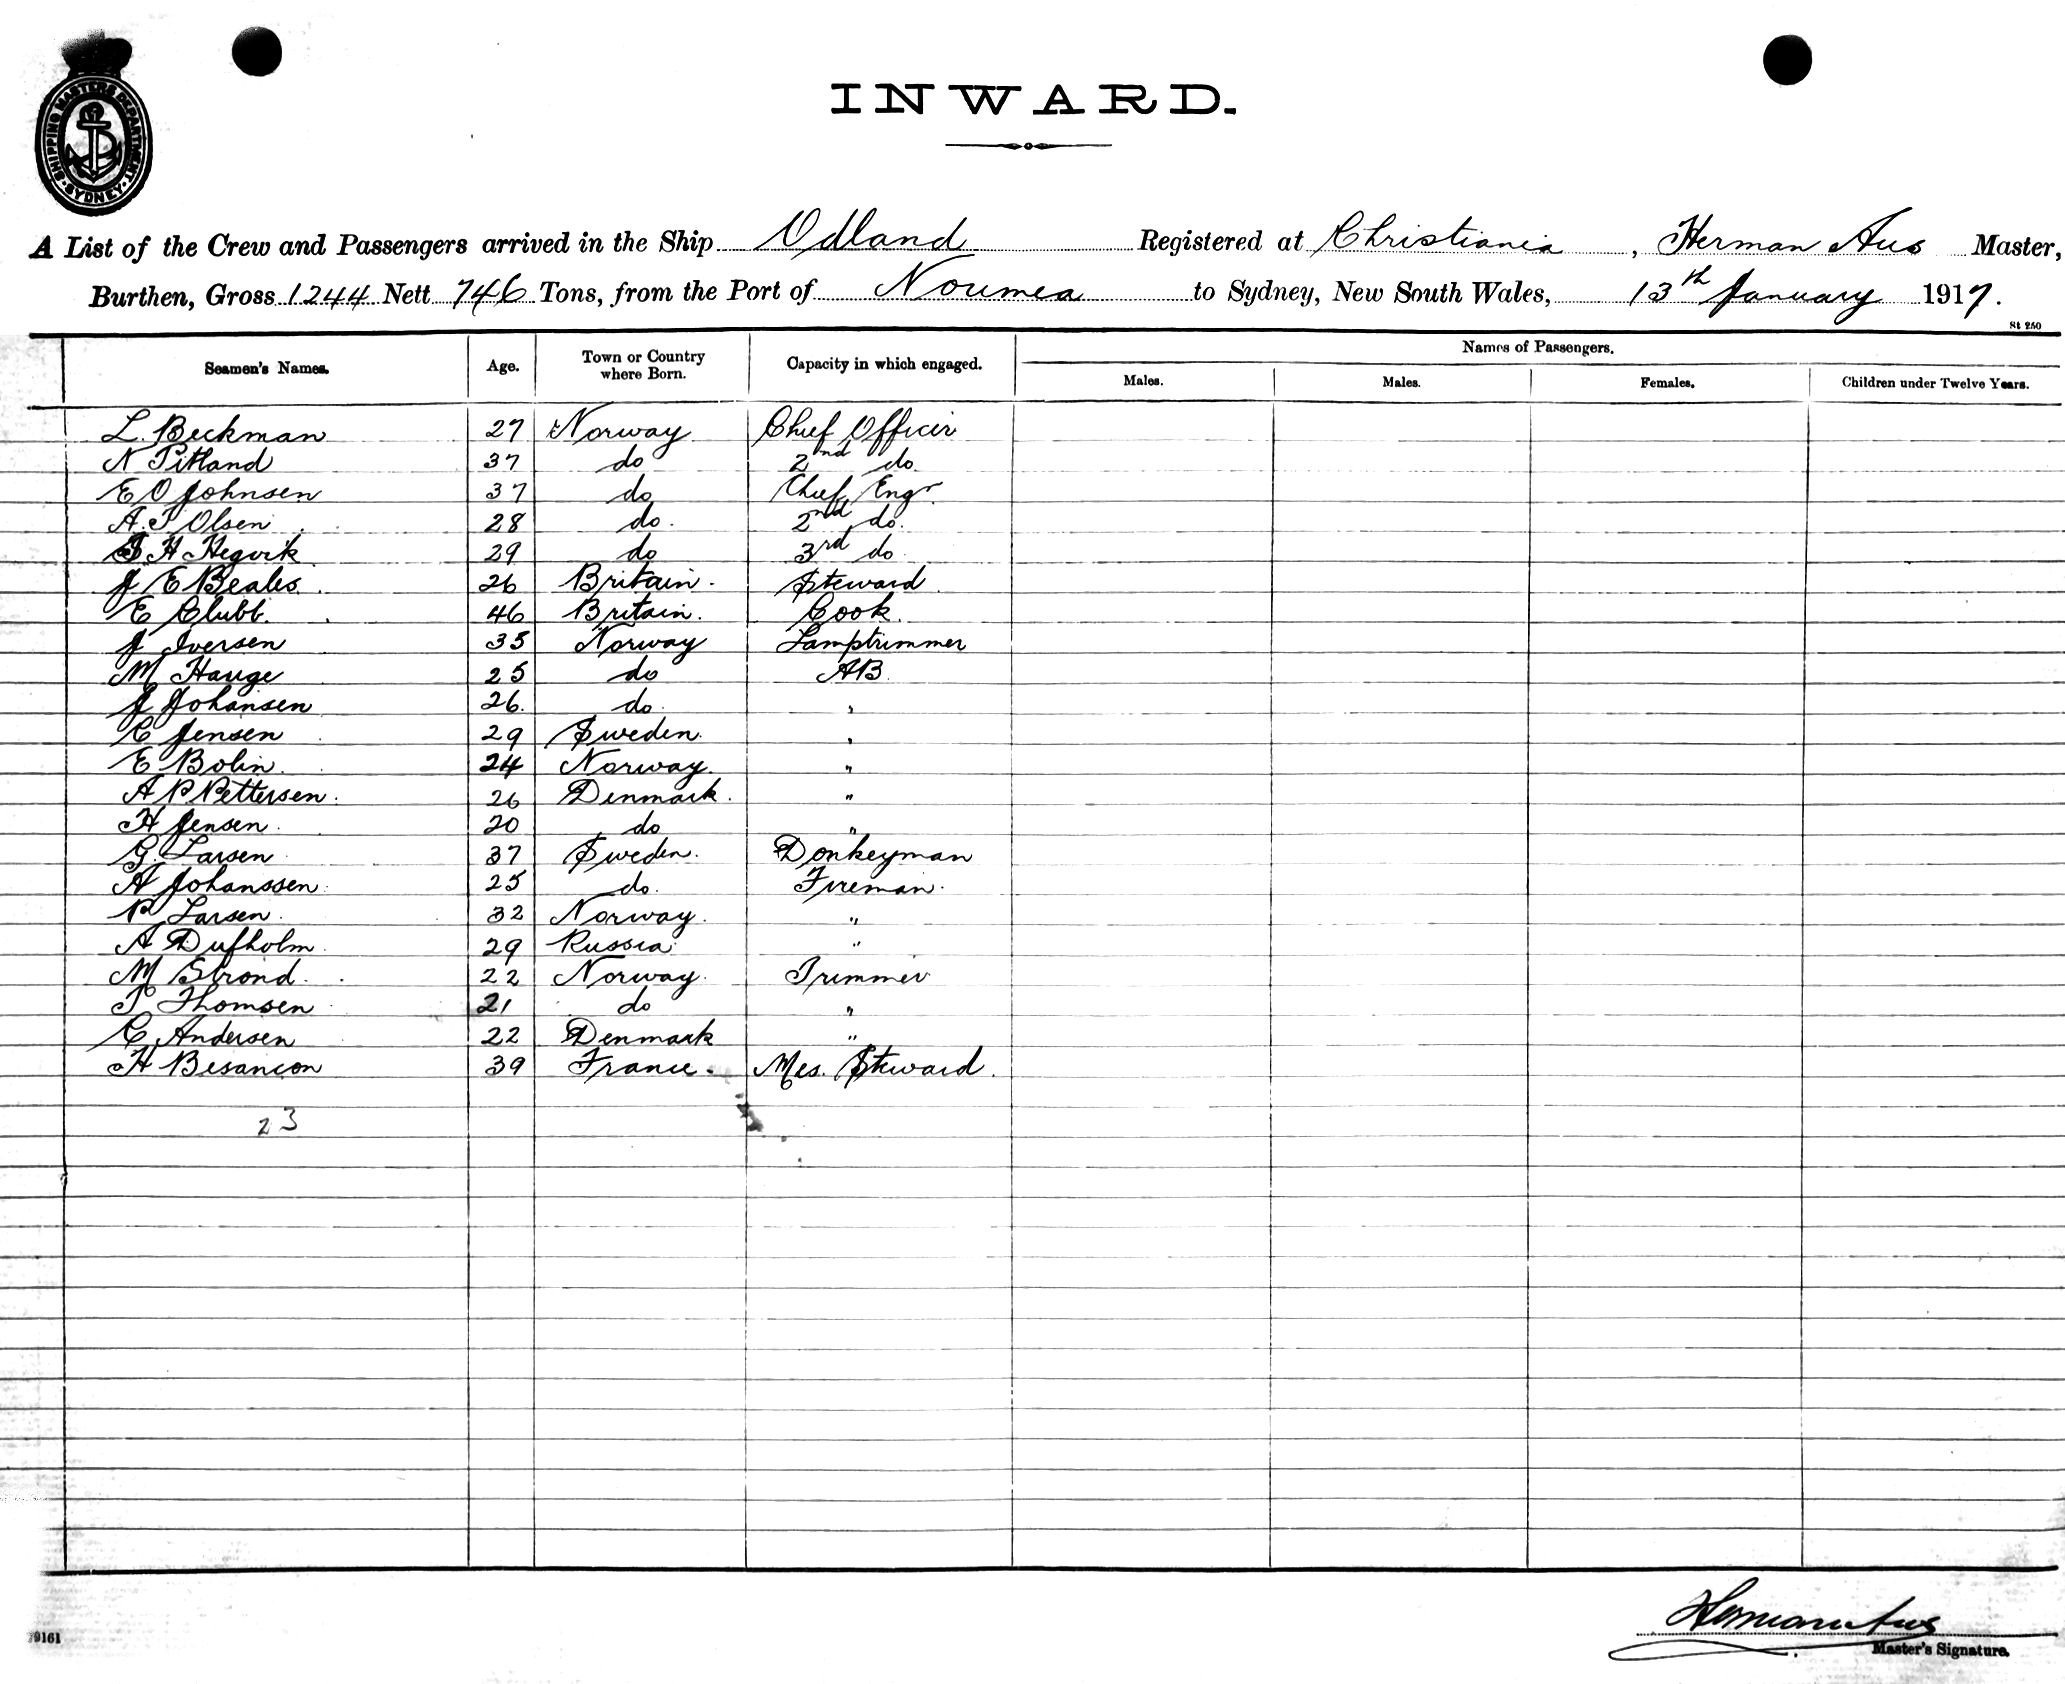 SHIPPING MASTERS DEPARTMENT
SYDNEY
INWARD.
A List of the Crew and Passengers arrived in the Ship Odland Registered at Christiania, Herman Aus Master,
Burthen, Gross 1244 Nett 746 Tons, from the Port of Noumea to Sydney, New South Wales, 13th January 1917.
St 250
Seamen's Names. Age. Town or Country where Born. Capacity in which engaged. Names of Passengers.
Males. Males. Females. Children under Twelve Years.
L. Beckman 27 Norway Chief Officer
N Pitland 37 do 2nd do.
E O Johnsen 37 do Chief Engr.
A. T Olsen 28 do. 2nd do.
H Hegvik 29 do 3rd do
J E Beales. 26 Britain. Steward
E Clubb. 46 Britain. Cook.
J Iversen 35 Norway Lamptrimmer
M Hauge 25 do AB.
J Johansen 26. do. "
C Jensen 29 Sweden. "
E Bolin. 24 Norway. "
A P Pettersen. 26 Denmark. "
H Jensen. 20 do "
G. Larsen 37 Sweden. Donkeyman
A Johanssen. 25 do. Fireman.
P Larsen. 32 Norway. "
A Dufholm. 29 Russia. "
M Strond. 22 Norway. Trimmer
T Thomsen 21 do "
C Andersen 22 Denmark "
H Besancon 39 France. Mes. Steward.
23
79161
Herman Aus
Master's Signature.